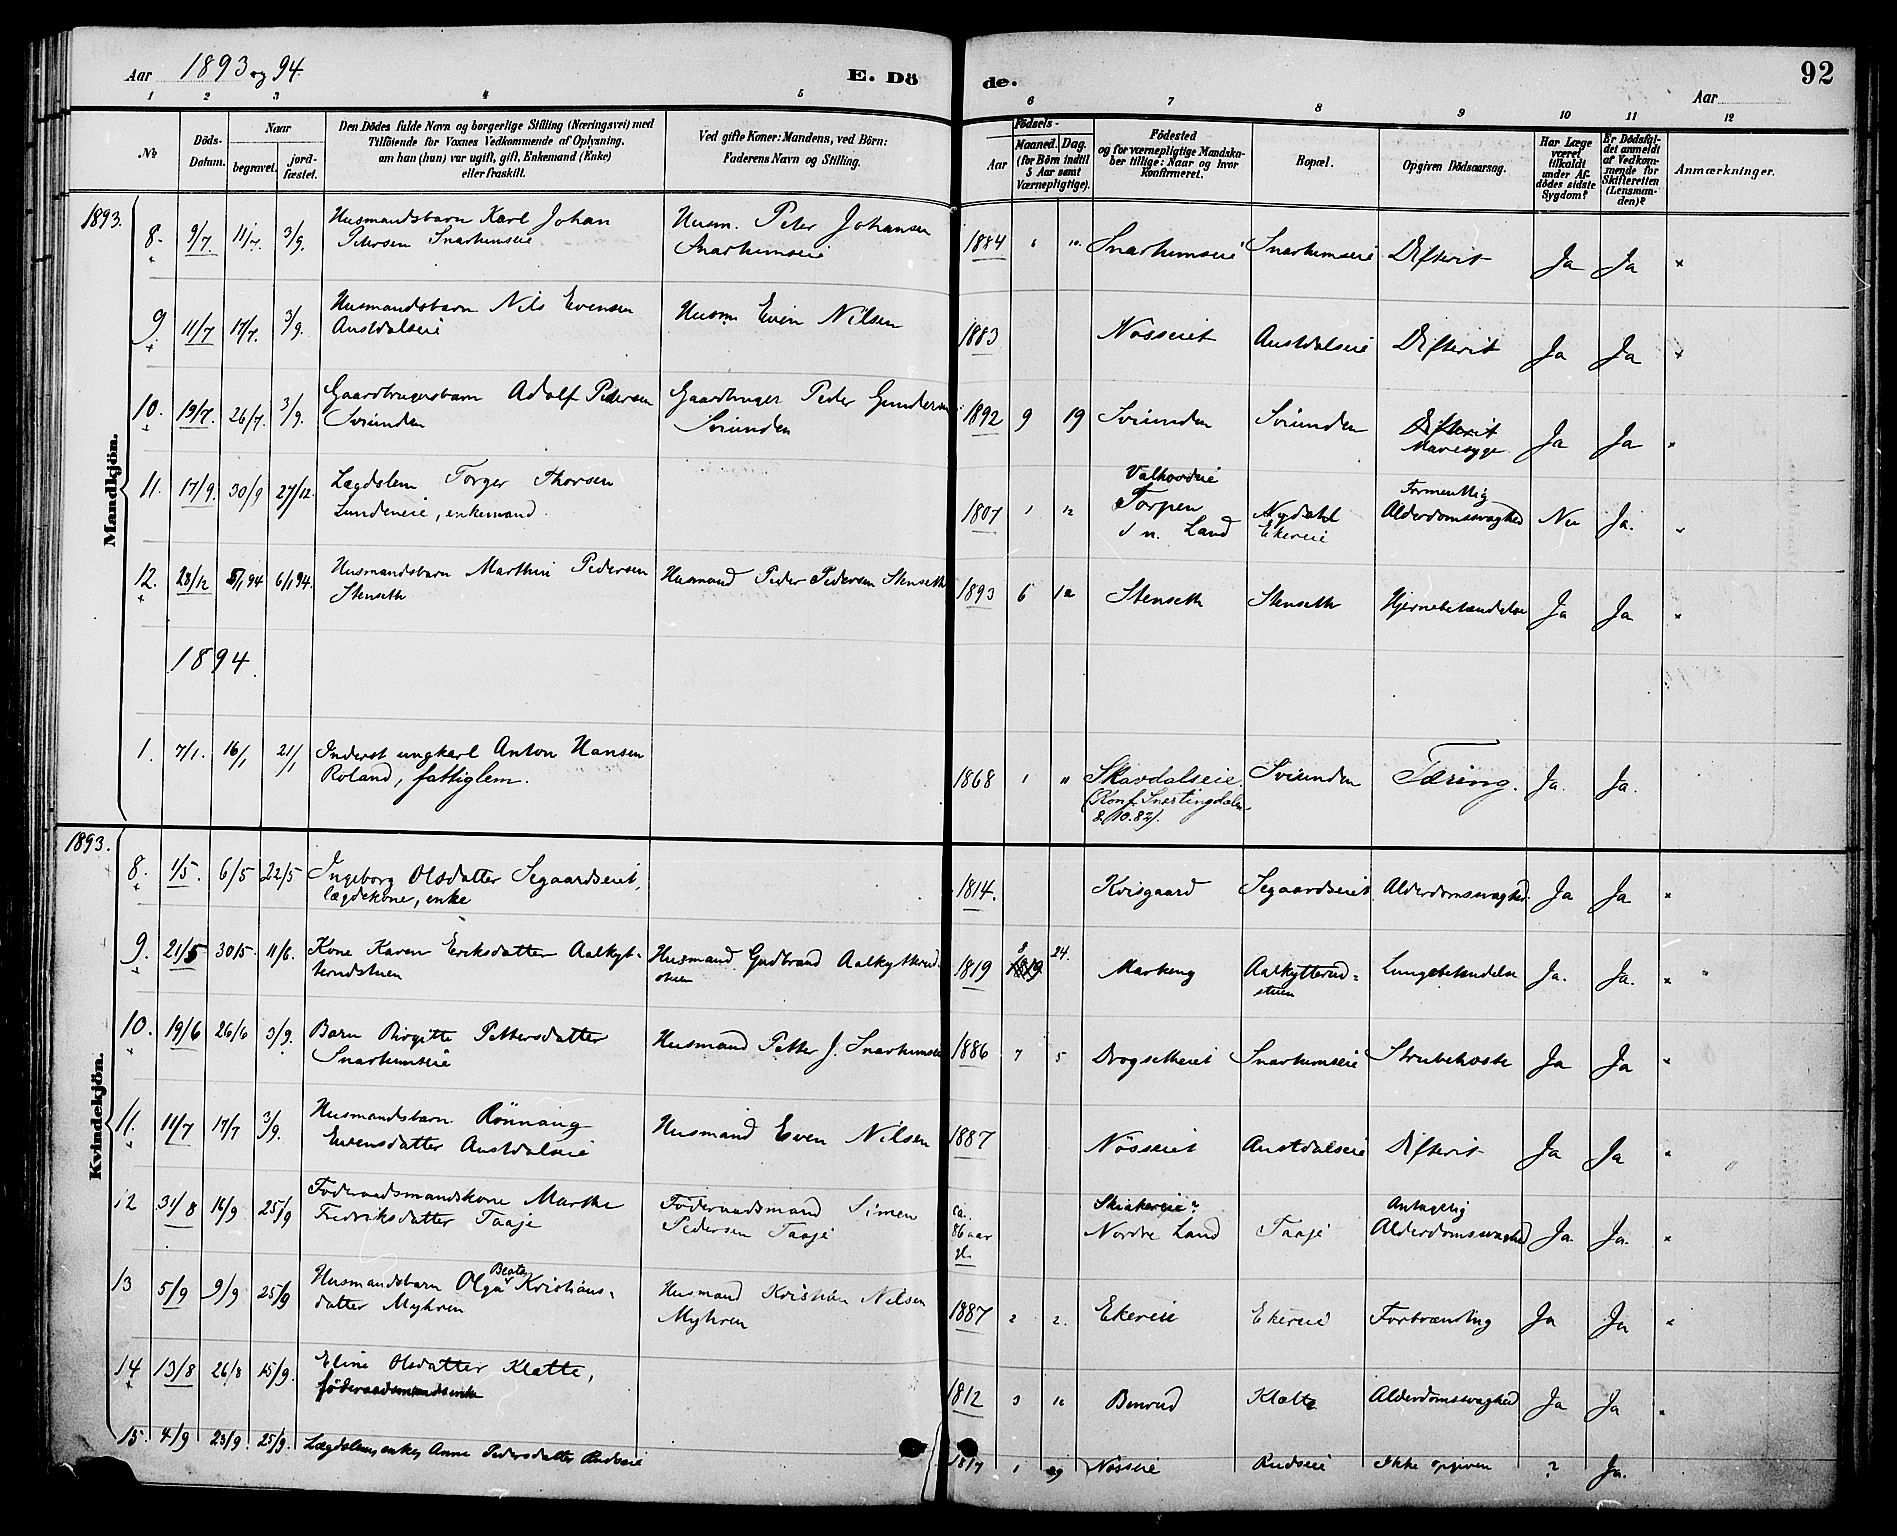 Aar 1893 og 94. E. Dö de. Aar 92
1 2 3 4 5 6 7 8 9 10 11 12
No
Döds-Datum.
Naar
begravet.
jord-fæstet.
Den Dödes fulde Navn og borgerlige Stilling (Næringsvei) med
Tilföiende for Voxnes Vedkommende af Oplysning,
om han (hun) var ugift, gift, Enkemand (Enke)
eller fraskilt.
Ved gifte Koner: Mandens, ved Börn:
Faderens Navn og Stilling.
Födsels-
Aar
Maaned. Dag.
(for Börn indtil
5 Aar samt
Værnepligtige).
Födested
og for værnepligtige Mandska-
ber tillige: Naar og hvor
Konfirmeret.
Bopæl.
Opgiven Dödsaarsag.
Har Læge
været
tilkaldt
under Af-
dödes sidste
Sygdom?
Er Dödsfal-
det anmeldt
af Vedkom-
mende for
Skifteretten
(Lensman-
den)?
Anmærkninger.
Mandkjön.
1893.
8. 9/7. 11/7. 3/9. Husmandsbarn Karl Johan Husm. Peter Johansen 1884 Snarhumseie Snarhumseie Difterit Ja Ja
Petersen Snarhumseie Snarhumseie
9. 11/7 17/7. 3/9. Husmandsbarn Nils Evensen Husm. Even Nilsen 1883 Nösseiet Austdalseie Difterit Ja Ja
Austdalseie
10. 19/7. 26/7. 3/9. Gaardbrugersbarn Adolf Pedersen Gaardbruger Peder Gundersen 1892 9 19 Sviunden Sviunden Difterit Ja Ja
Sviunden Sviunden Mavesyge
11. 17/9. 30/9 27/12. Lægdslem Torger Thorsen 1807 1 12 Valhovdeie Nydahl Formentlig Nei Ja.
Lundeneie, enkemand. Torpen Ekereie Alderdomssvaghed
i n. Land
12. 28/12 5/1 94 6/1 94. Husmandsbarn Marthin Pedersen Husmand Peder Pedersen Stenseth 1893 6 Stenseth Stenseth Hjernebetændelse Ja Ja
Stenseth
1894.
1. 7/1. 16/1 21/1 Inderst ungkarl Anton Hansen 1868 1 11 Skavdalseie. Sviunden Tæring. Ja. Ja.
Roland, fattiglem. (Konf. Snertingdalen
8/10.82).
Kvindekjön.
1893.
8. 1/5. 6/5 22/5 Ingeborg Olsdatter Segaardseiet, 1814. Kvisgaard Segaardseiet Alderdomssvaghed. Ja Ja
lægdekone, enke
9. 21/5 30/5. 11/6. Kone Karen Eriksdatter Aalkyt- Husmand Gudbrand Aalkytterud- 1819 8 24. Markeng Aalkytterud= Lungebetændelse Ja. Ja.
terudstuen stuen stuen
10. 19/6 26/6 3/9. Barn Birgitte Pettersdatter Husmand Petter J. Snarhumseie 1886 7 5 Drogsetheiet Snarhumseie Strubehoste Ja Ja
Snarhumseie
11. 11/7 17/7 3/9. Husmandsbarn Rönnaug Husmand Even Nilsen 1887 Nösseiet Austdalseie Difterit Ja Ja
Evensdatter Austdalseie
12 31/8 16/9. 25/9 Föderaadsmandskone Marthe Föderaadsmand Simen ca. 86 aar gl. Skiakereie? Taaje Antagelig Ja Ja.
Fredriksdatter Taaje Pedersen Taaje Nordre Land Alderdomssvaghed
13 5/9 9/9 25/9 Husmandsbarn Olga Beate Kristians- Husmand Kristian Nilsen 1887 2 2. Ekereie Ekereie Forbrænding Ja Ja
datter Myhren Myhren
14 13/8 26/8 15/9. Eline Olsdatter Klette, 1812 3 Benrud Klette Alderdomssvaghed Ja Ja
föderaadsmandsenke
15. 4/9 23/9. 25/9. Lægdslem, enke, Anne Pedersdatter Rudseie 1 29 Nösseie Rudseie Ikke opgiven ? Ja.